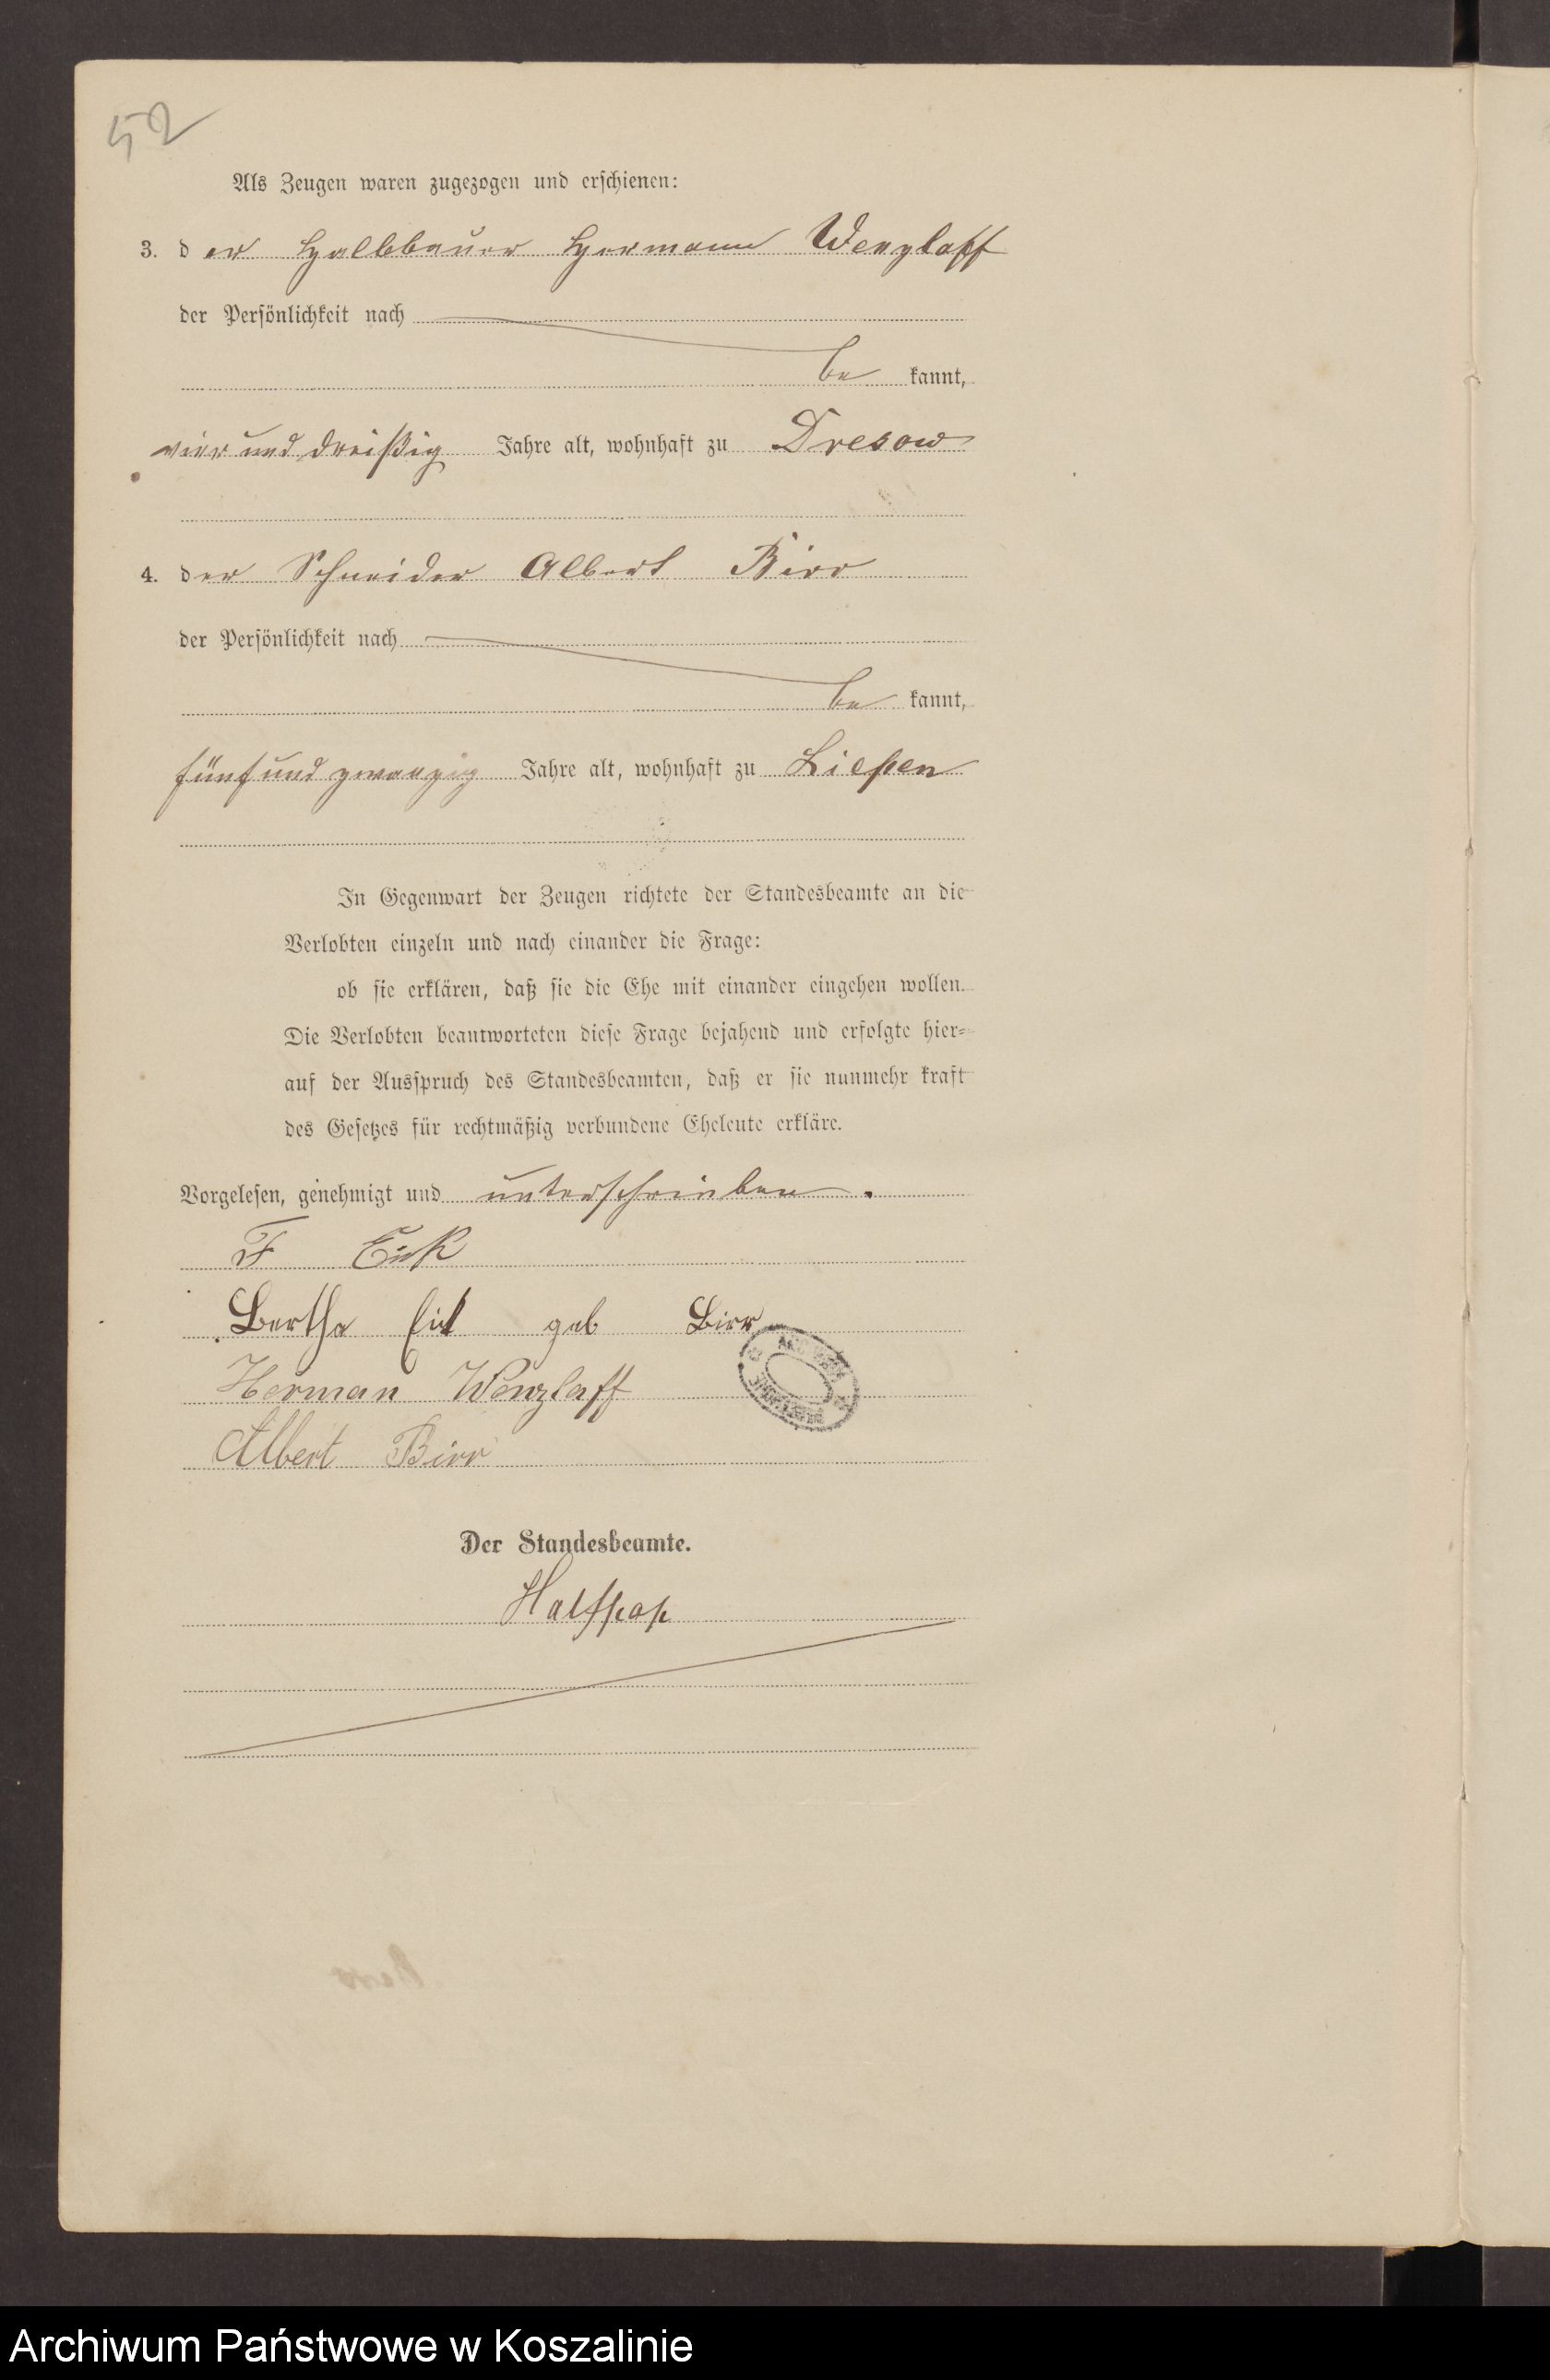 52
Als Zeugen waren zugezogen und erschienen:
3. der Halbbauer Hermann Wenzlaff
der Persönlichkeit nach
be kannt,
vier und dreißig Jahre alt, wohnhaft zu Dresow
4. der Schneider Albert Birr
der Persönlichkeit nach
be kannt,
fünf und zwanzig Jahre alt, wohnhaft zu Liepen
In Gegenwart der Zeugen richtete der Standesbeamte an die
Verlobten einzeln und nach einander die Frage:
ob sie erklären, daß sie die Ehe mit einander eingehen wollen.
Die Verlobten beantworteten diese Frage bejahend und erfolgte hier-
auf der Ausspruch des Standesbeamten, daß er sie nunmehr kraft
des Gesetzes für rechtmäßig verbundene Eheleute erkläre.
Vorgelesen, genehmigt und unterschrieben.
F
Bertha geb Birr
Herman Wenzlaff
Albert Birr
Der Standesbeamte.
Halfpap
Archiwum Państwowe w Koszalinie